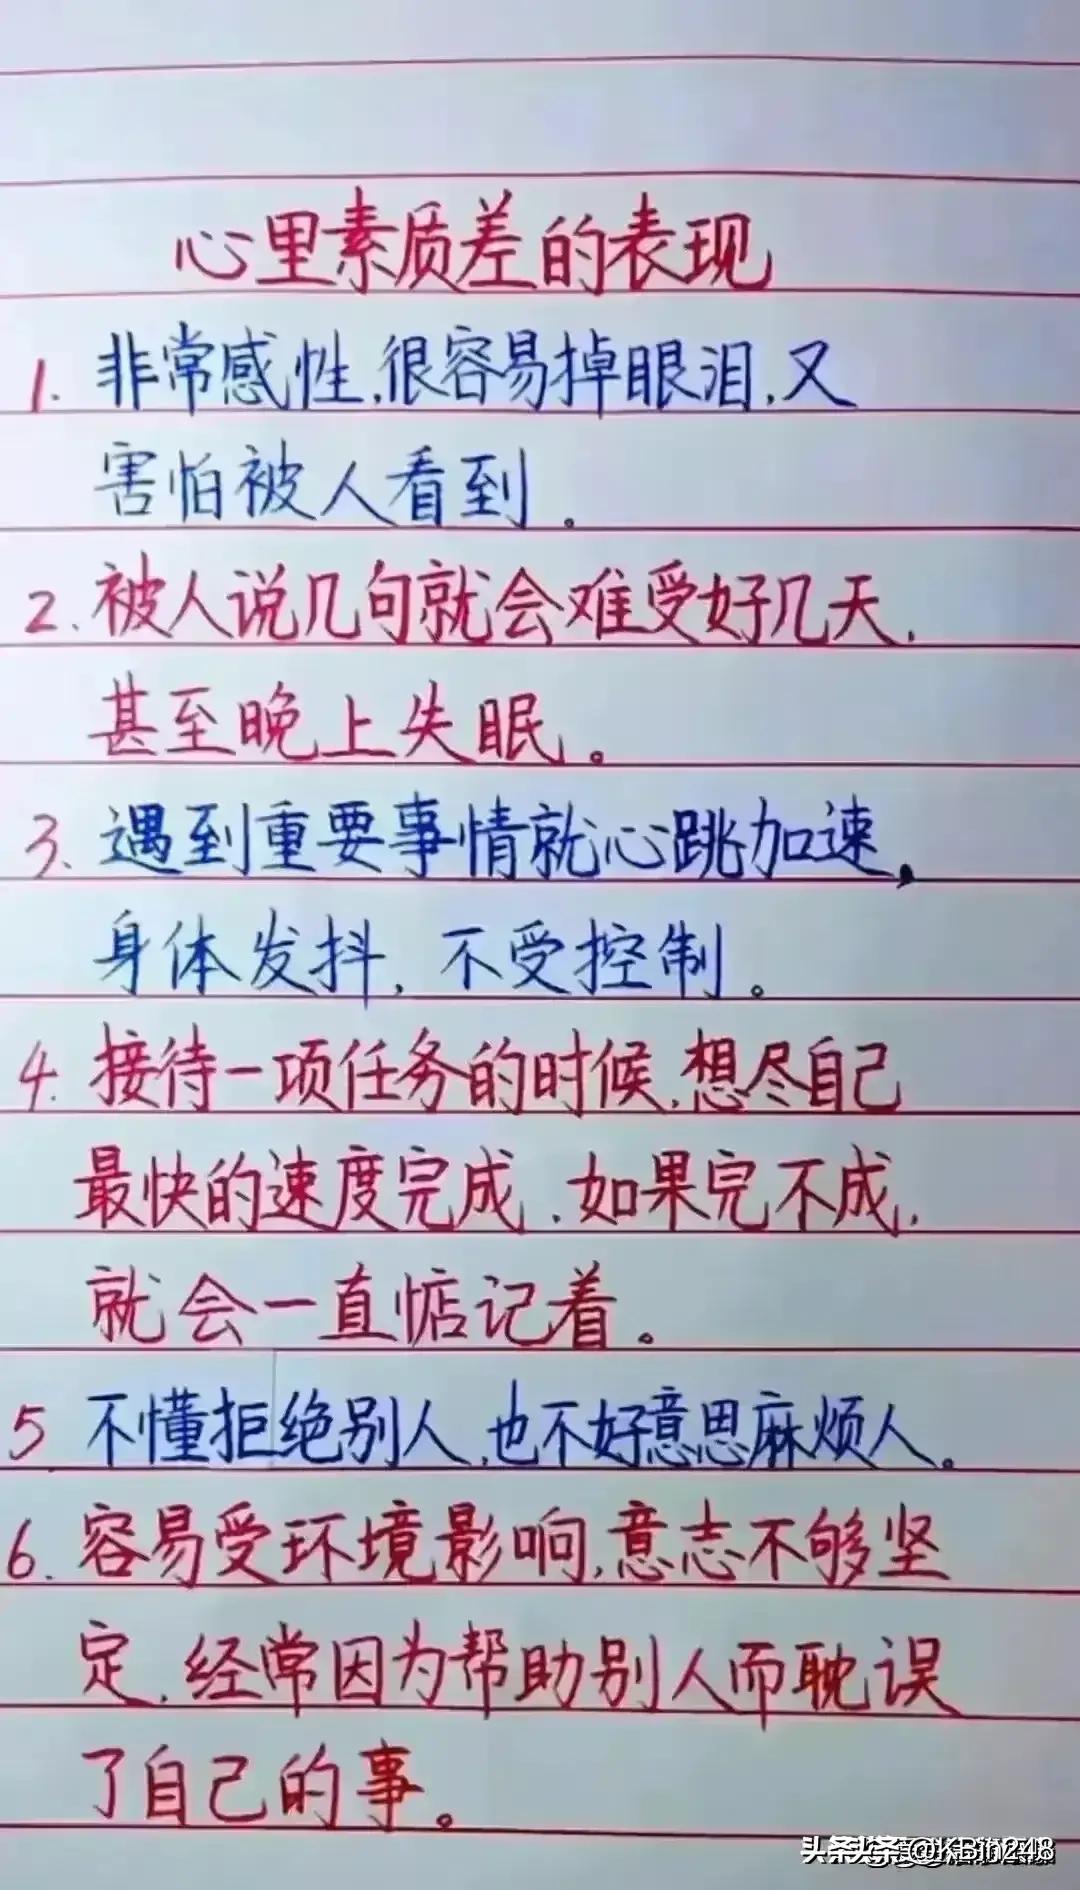 心里素质差的表现
1. 非常感性,很容易掉眼泪,又
害怕被人看到。
2. 被人说几句就会难受好几天,
甚至晚上失眠。
3. 遇到重要事情就心跳加速,
身体发抖,不受控制。
4. 接待一项任务的时候,想尽自己
最快的速度完成,如果完不成,
就会一直惦记着。
5 不懂拒绝别人,也不好意思麻烦人。
6. 容易受环境影响,意志不够坚
定,经常因为帮助别人而耽误
了自己的事。
头条 @KBin248